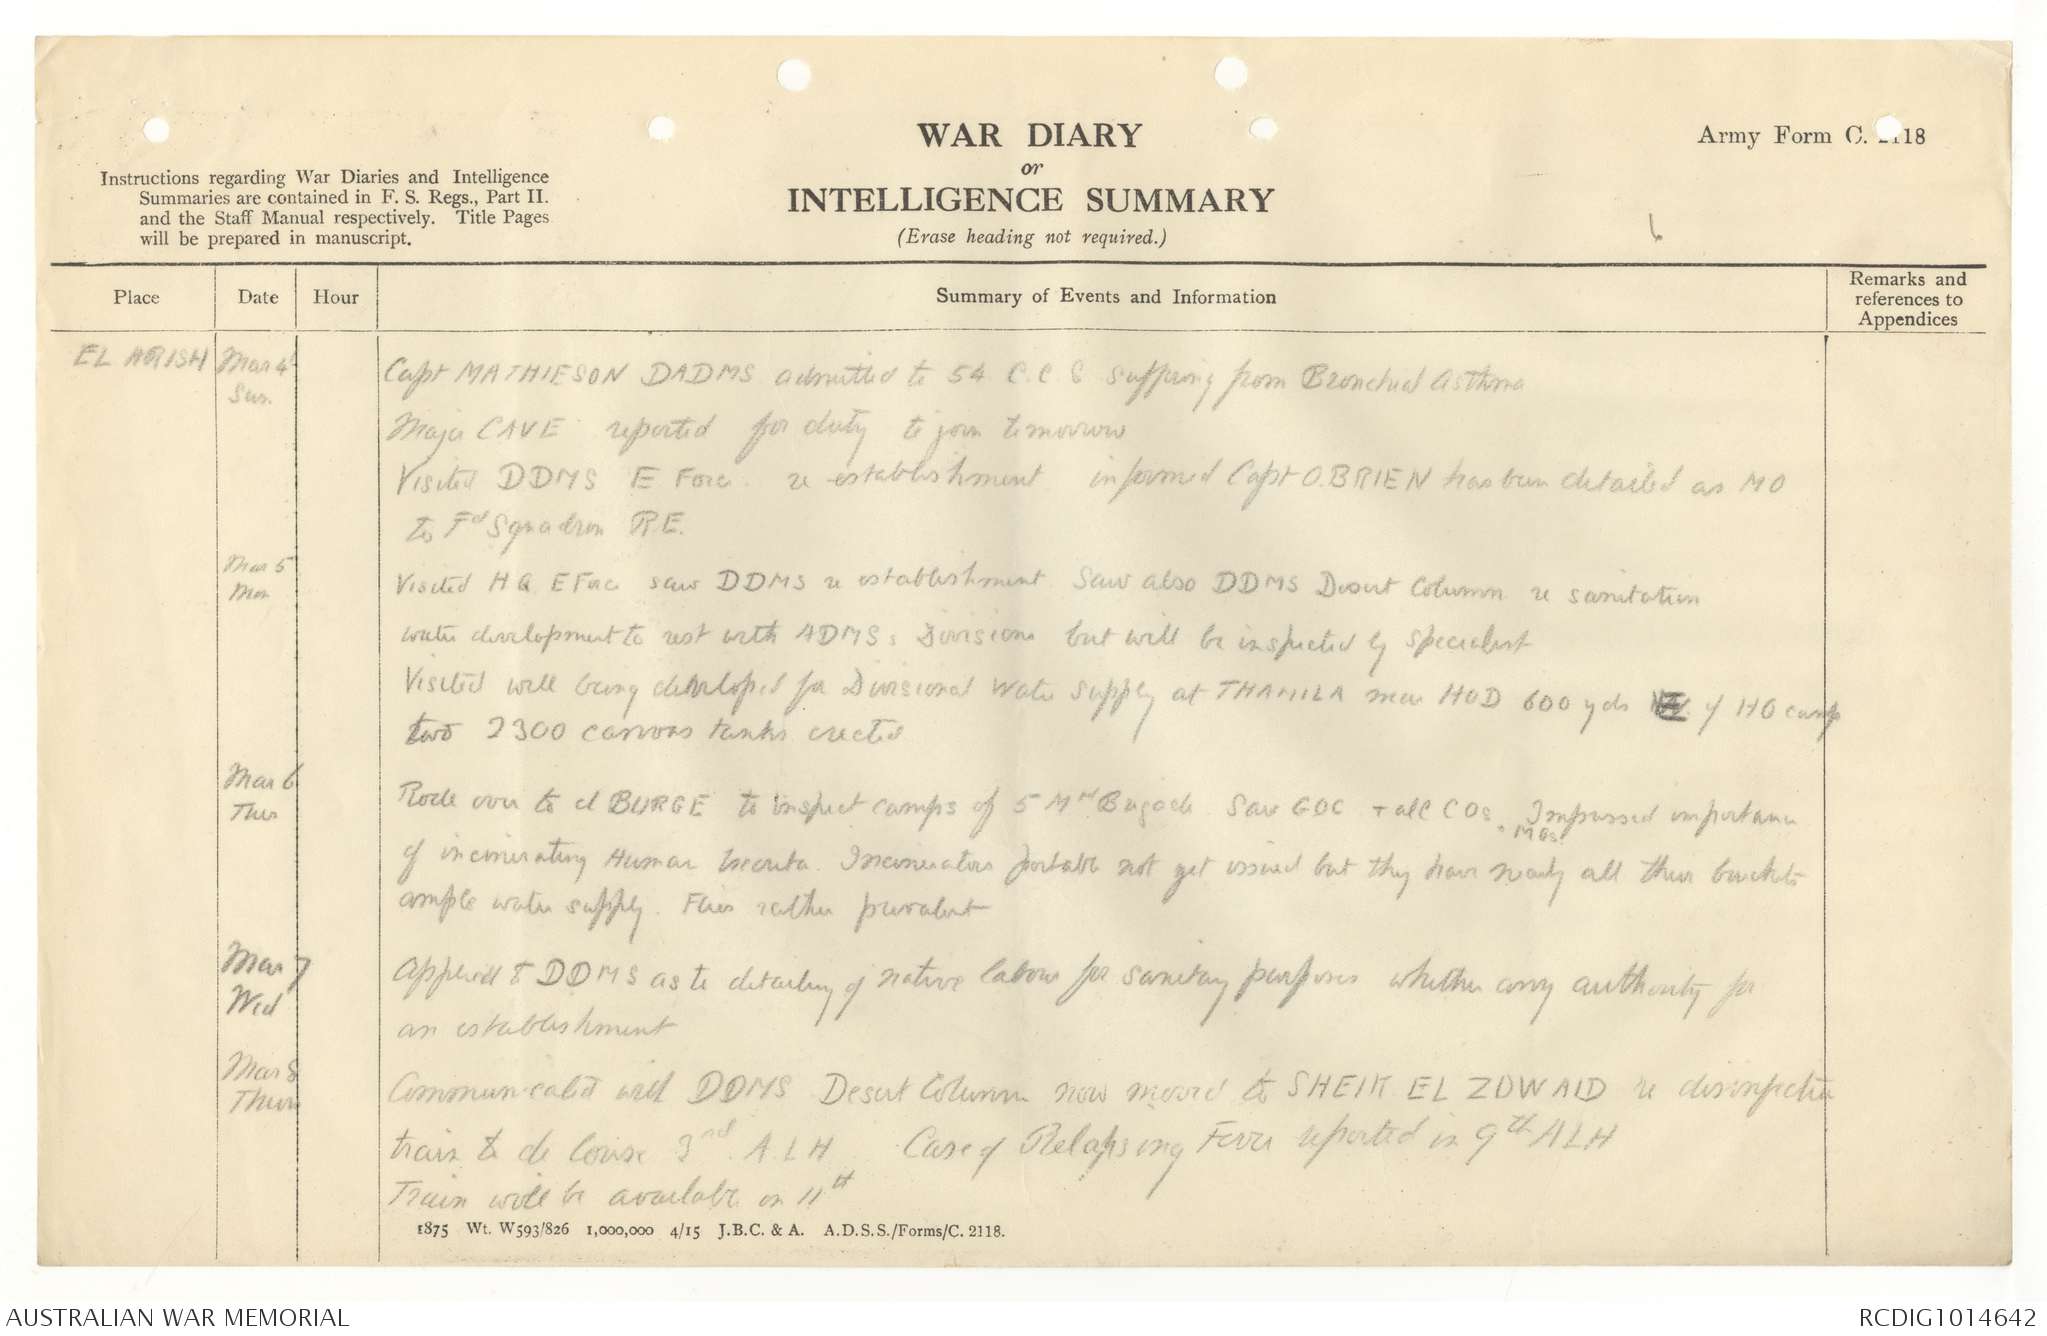 WAR DIARY
or
INTELLIGENCE SUMMARY
(Erase heading not required.)
Army Form C. 2118
Instructions regarding War Diaries and Intelligence
Summaries are contained in F. S. Regs., Part II.
and the Staff Manual respectively. Title Pages
will be prepared in manuscript.
6
Place Date Hour Summary of Events and Information Remarks and references to Appendices
EL ARISH Mar 4 Sun. Capt MATHIESON DADMS admitted to 54 C.C.S suffering from Bronchial Asthma
Major CAVE reported for duty to join tomorrow
Visited DDMS E Force re establishment informed Capt O.BRIEN has been detailed as MO
to Fd Squadron R.E.
Mar 5 Mon Visited HQ E Force saw DDMS re establishment. Saw also DDMS Desert Column re sanitation
water development to rest with ADMS. Divisions but will be inspected by specialist
Visited well being developed for Divisional Water Supply at THAMILA near HOD 600 yds of HQ camp
two 2300 canvas tanks erected
Mar 6 Tues Rode over to el BURGE to inspect camps of 5 Mtd Brigade. Saw GOC + all COs + MOs. Impressed importance
of incinerating Human Excreta. Incinerators portable not yet issued but they have nearly all their buckets
ample water supply. Flies rather prevalent
Mar 7 Wed Applied to DDMS as to detailing of native labour for sanitary purposes whether any authority for
an establishment
Mar 8 Thurs Communicated with DDMS Desert Column now moved to SHEIK EL ZOWAID re disinfecting
train to de louse 3rd A.L.H Case of Relapsing Fever reported in 9th ALH
Train will be available on 11th
1875 Wt. W593/826 1,000,000 4/15 J.B.C. & A. A.D.S.S./Forms/C. 2118.
AUSTRALIAN WAR MEMORIAL
RCDIG1014642